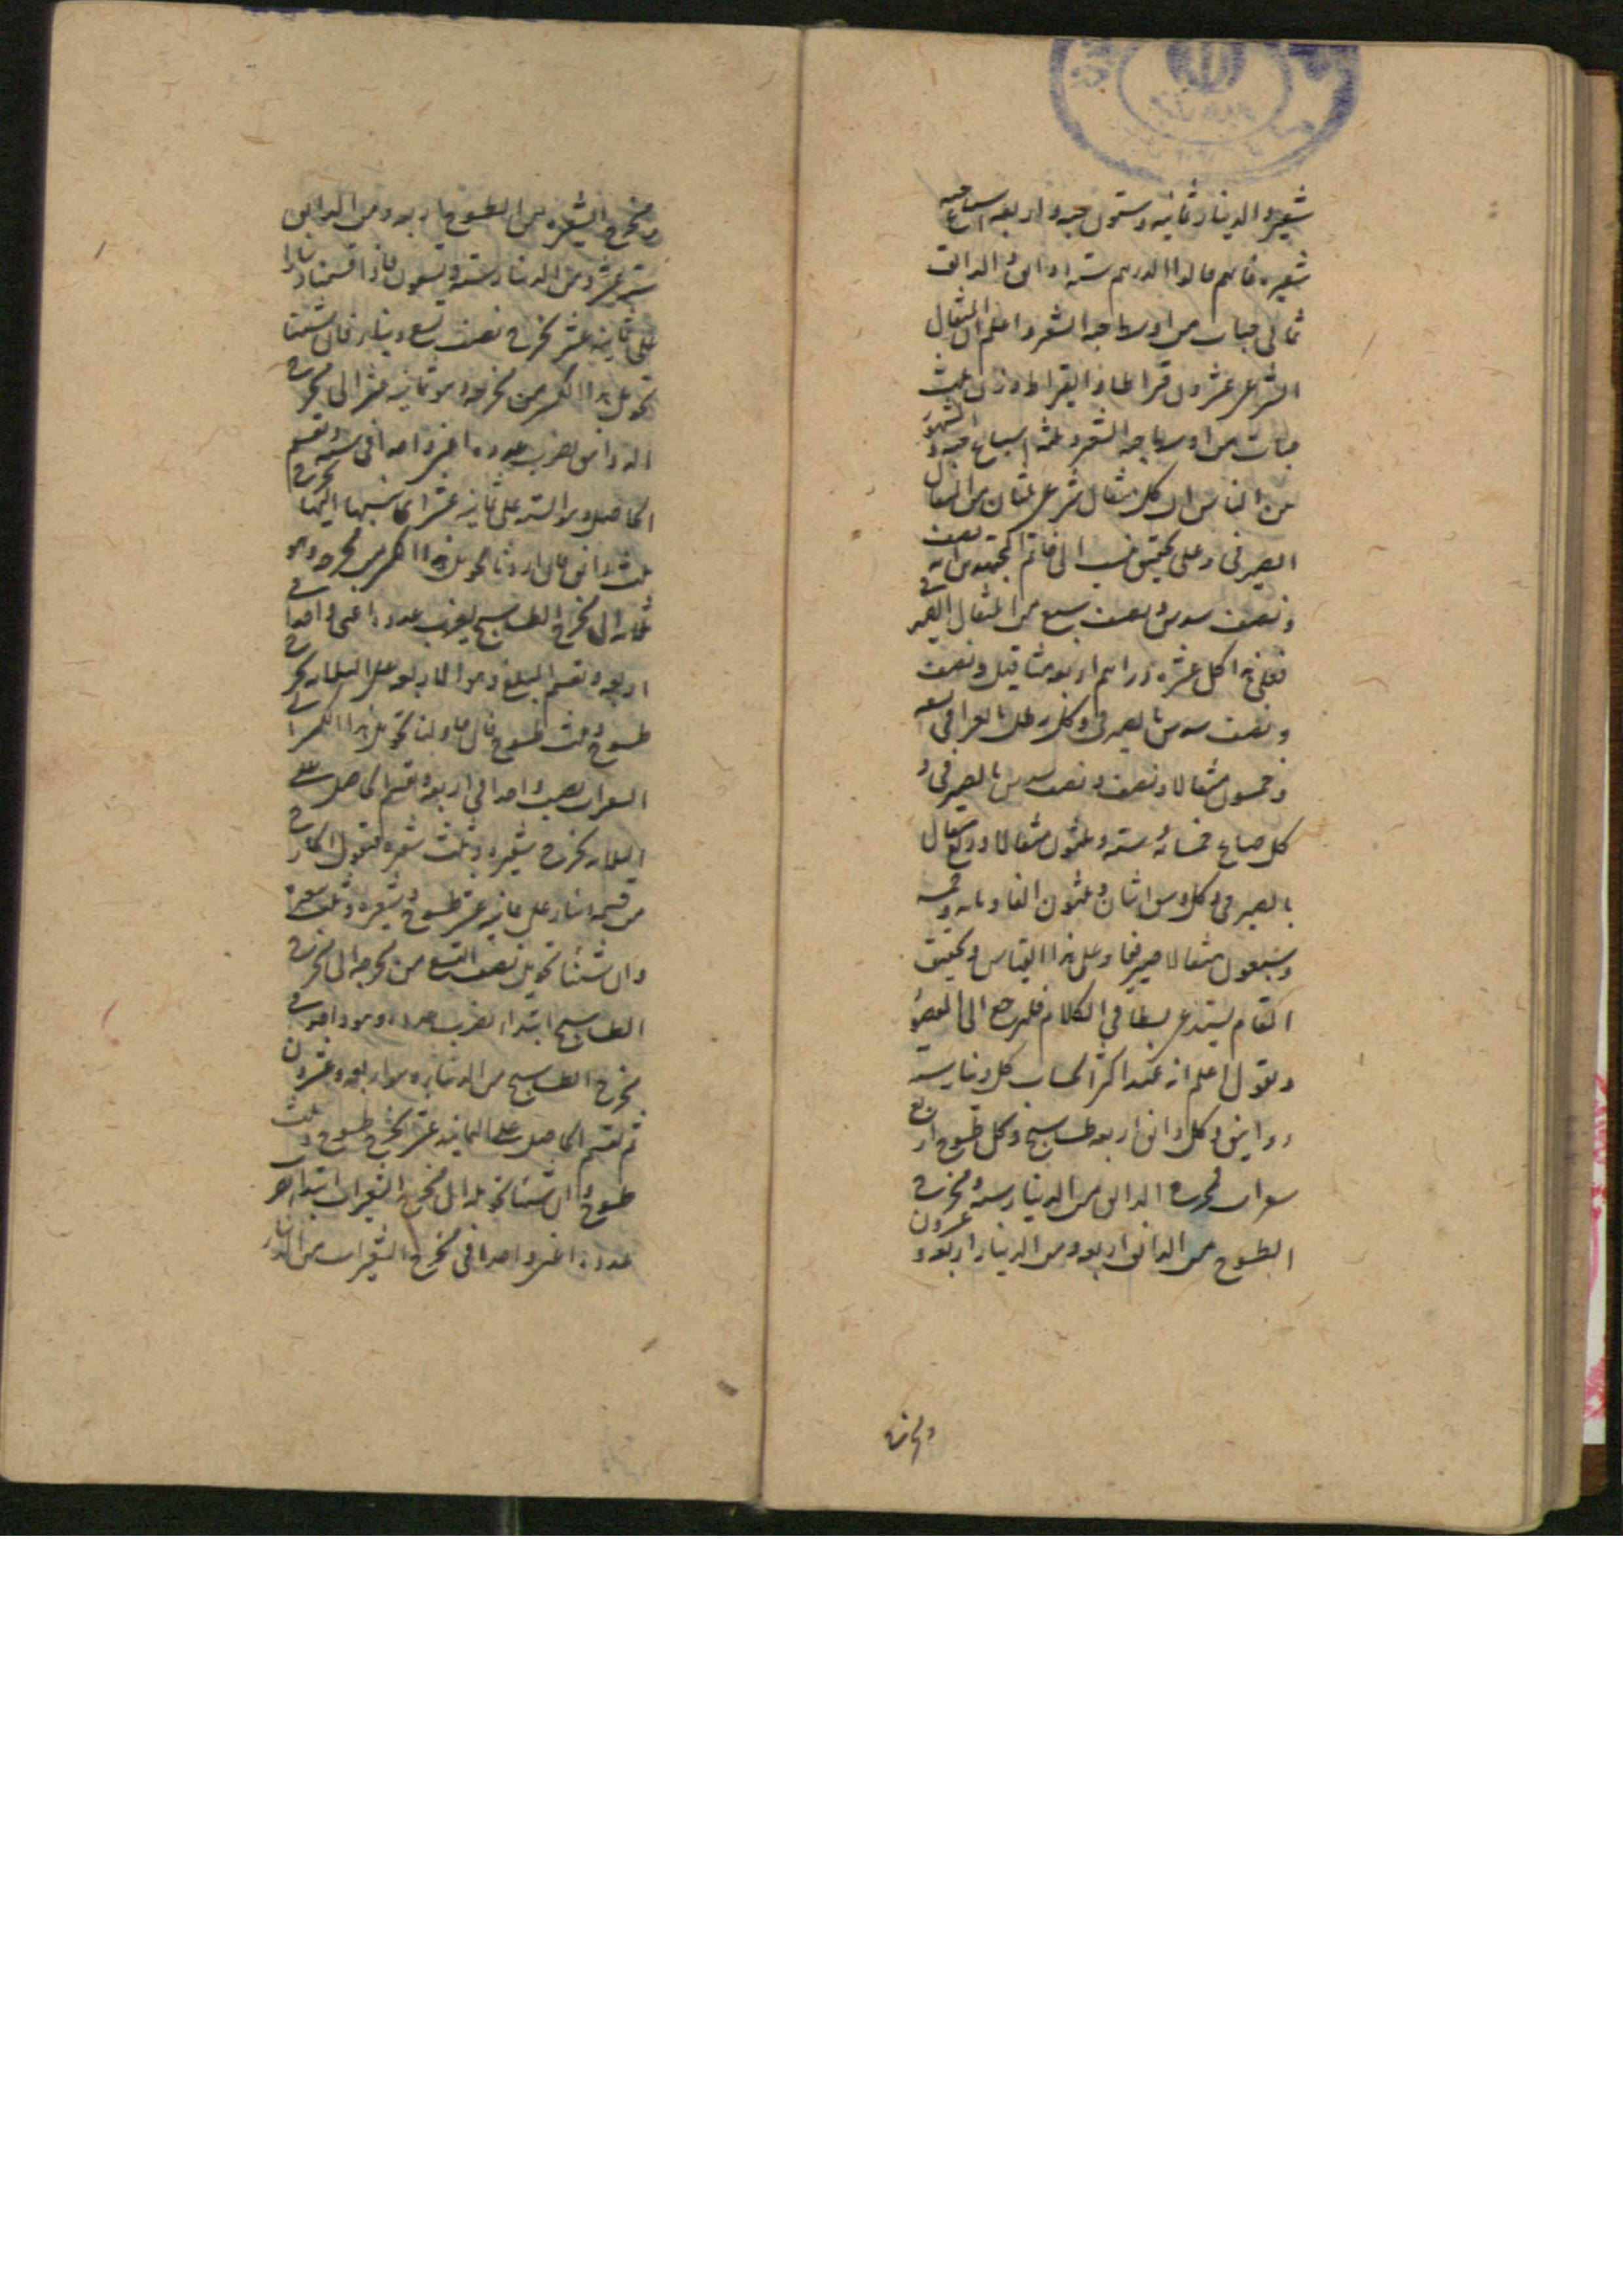 شعيره والدينار ثمانيه وستون حبه واربعه اسباع حبه
شعيره فانهم قالوا الدرهم سته دوانق والدانق
ثماني حبات من اوساط حبه الشعير واعلم ان المثقال
الشرعي عشرون قيراطا والقيراط وزن ثلث
حبات من اوساط حبه الشعير وثلثه اسباع حبه واشتهر
من الناس ان كل مثقال شرعي ثلثان من المثقال
الصيرفي وعلى تحقيق نسب الى خاتم المجتهدين انه نصف
ونصف سدس ونصف سبع من المثقال الصيرفي
فعلى هذا كل عشره دراهم اربعه مثاقيل ونصف
ونصف سدس بالصيرفي وكل رطل بالعراقي تسعه
وخمسون مثقالا ونصف ونصف سدس بالصيرفي و
كل صاع خمسائه سته وثلثون مثقالا وربع مثقال
بالصيرفي وكل وسق اثنان وثلثون الفا ومائه وخمسه
وسبعون مثقالا صيرفيا وعلى هذا القياس وتحقيق
المقام يستدعي بسطا في الكلام فليرجع الى المقصود
ونقول اعلم انه عند اكثر الحساب كل دينار سته
دوانيق وكل دانق اربعه طساسيج وكل طسوج اربع
شعيرات فمخرج الدانق من الدينار سته ومخرج
الطسوج من الدانق اربعه ومن الدينار اربعه وعشرون
ومخرج
ومخرج الشعيره من الطسوج اربعه ومن الدانق
سته عشر ومن الدينار سته وتسعون فاذا قسمنا دينارا
على ثمانيه عشر يخرج نصف تسع دينار فان شئنا
تحويل هذا الكسر من مخرجه وهو ثمانيه عشر الى مخرج
الدوانق نضرب عدده اعني واحدا في سته ونقسم
الحاصل وهو السته على ثمانيه عشر اي ننسبها اليها يخرج
ثلث دانق فان اردنا تحويل هذا الكسر من مخرجه وهو
ثلثه الى مخرج الطساسيج نضرب عدده اعني واحدا في
اربعه ونقسم المبلغ وهو الاربعه على الثلثه يخرج
طسوج وثلث طسوج فان حاولنا تحويل هذا الكسر الى
الشعيرات نضرب واحدا في اربعه ونقسم الحاصل على
الثلثه يخرج شعيره وثلث شعيره فنقول الخارج
من قسمه دينار على ثمانيه عشر طسوج وشعيره وثلث شعيره
وان شئنا تحويل نصف التسع من مخرجه الى مخرج
الطساسيج ابتداء نضرب عدده وهو واحد في
مخرج الطساسيج من الدينار وهو اربعه وعشرون
ثم نقسم الحاصل على الثمانيه عشر يخرج طسوج وثلث
طسوج وان شئنا تحويله الى مخرج الشعيرات ابتداء نضرب
عدده اعني واحدا في مخرج الشعيرات من الدينار